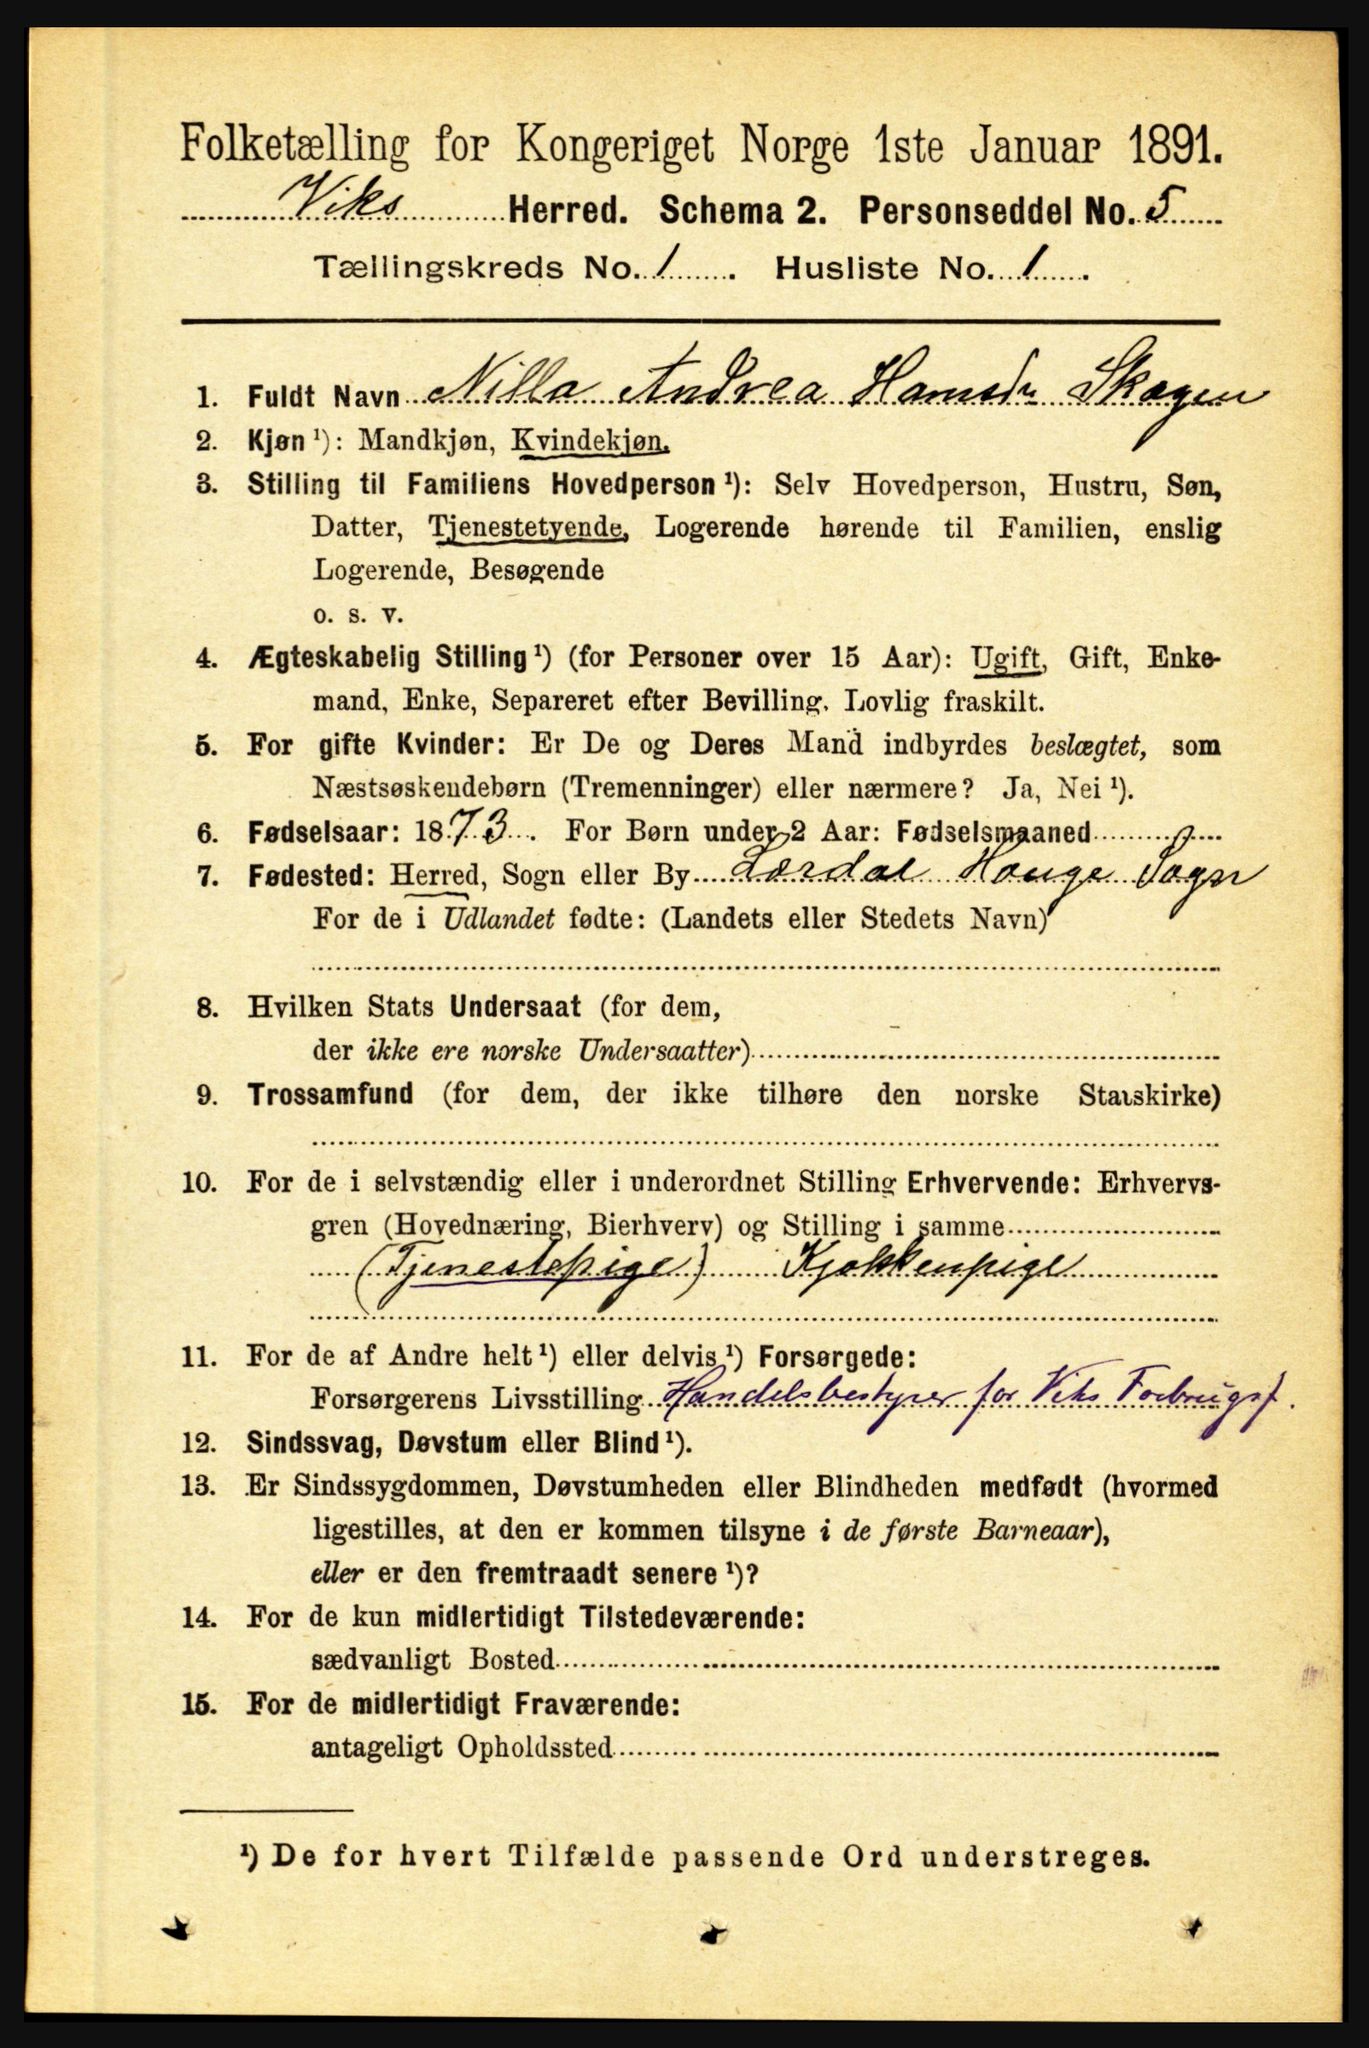 Folketælling for Kongeriget Norge 1ste Januar 1891.
Viks Herred. Schema 2. Personseddel No. 5
Tællingskreds No. 1. Husliste No. 1.
1. Fuldt Navn Nilla Andrea Hansdr Skogen
2. Kjøn ¹): Mandkjøn, Kvindekjøn.
3. Stilling til Familiens Hovedperson ¹): Selv Hovedperson, Hustru, Søn,
Datter, Tjenestetyende, Logerende hørende til Familien, enslig
Logerende, Besøgende
o. s. v.
4. Ægteskabelig Stilling ¹) (for Personer over 15 Aar): Ugift, Gift, Enke-
mand, Enke, Separeret efter Bevilling. Lovlig fraskilt.
5. For gifte Kvinder: Er De og Deres Mand indbyrdes beslægtet, som
Næstsøskendebørn (Tremenninger) eller nærmere? Ja, Nei ¹).
6. Fødselsaar: 1873. For Børn under 2 Aar: Fødselsmaaned
7. Fødested: Herred, Sogn eller By Lærdal Hauge Sogn
For de i Udlandet fødte: (Landets eller Stedets Navn)
8. Hvilken Stats Undersaat (for dem,
der ikke ere norske Undersaatter)
9. Trossamfund (for dem, der ikke tilhøre den norske Statskirke)
10. For de i selvstændig eller i underordnet Stilling Erhvervende: Erhvervs-
gren (Hovednæring, Bierhverv) og Stilling i samme
(Tjenestepige) Kjøkkenpige
11. For de af Andre helt ¹) eller delvis ¹) Forsørgede:
Forsørgerens Livsstilling Handelsbestyrer for Viks Forbrugsf.
12. Sindssvag, Døvstum eller Blind ¹).
13. Er Sindssygdommen, Døvstumheden eller Blindheden medfødt (hvormed
ligestilles, at den er kommen tilsyne i de første Barneaar),
eller er den fremtraadt senere ¹)?
14. For de kun midlertidigt Tilstedeværende:
sædvanligt Bosted
15. For de midlertidigt Fraværende:
antageligt Opholdssted
¹) De for hvert Tilfælde passende Ord understreges.